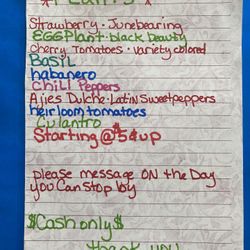 Strawberry · Junebearing
EGGPlant · black beauty
Cherry Tomatoes · Variety colored
BASIL
habanero
Chili Peppers
Ajies Dulche · Latin Sweetpeppers
heirloom tomatoes
Culantro
Starting @ $5 & up
please message ON the Day
you Can Stop by
$Cash only$
thank you!